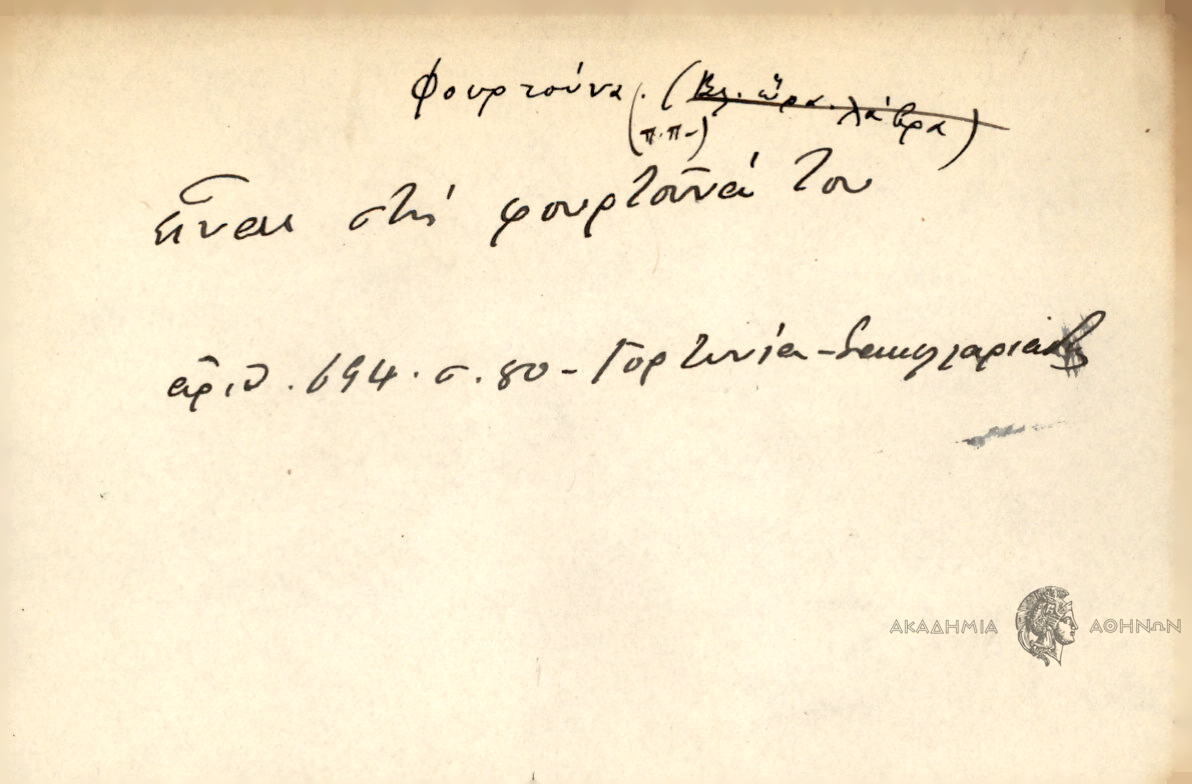 Φουρτούνα. (Βλ. ὥρα. λάβρα)
(π.π-)
εἶναι στὴ φουρτούνα του
ἀριθ. 694. σ. 80 - Γορτυνία -
ΑΚΑΔΗΜΙΑ ΑΘΗΝΩΝ